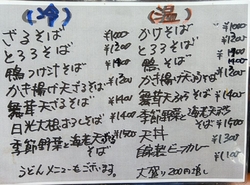 (冷)
ざるそば ¥1000
とろろそば ¥1200
鴨つけ汁そば ¥1900
かき揚げ天ざるそば ¥1300
舞茸天ざるそば ¥1400
日光大根おろしそば ¥1400
季節野菜と海老天ざるそば ¥1500
うどんメニューもございます。
(温)
かけそば ¥1000
とろろそば ¥1200
鴨そば
かき揚げ天ぷらそば ¥1300
舞茸天ぷらそば ¥1400
季節野菜と海老天ぷらそば ¥1500
天丼 ¥1300
カレー ¥1100
大盛り200円増し